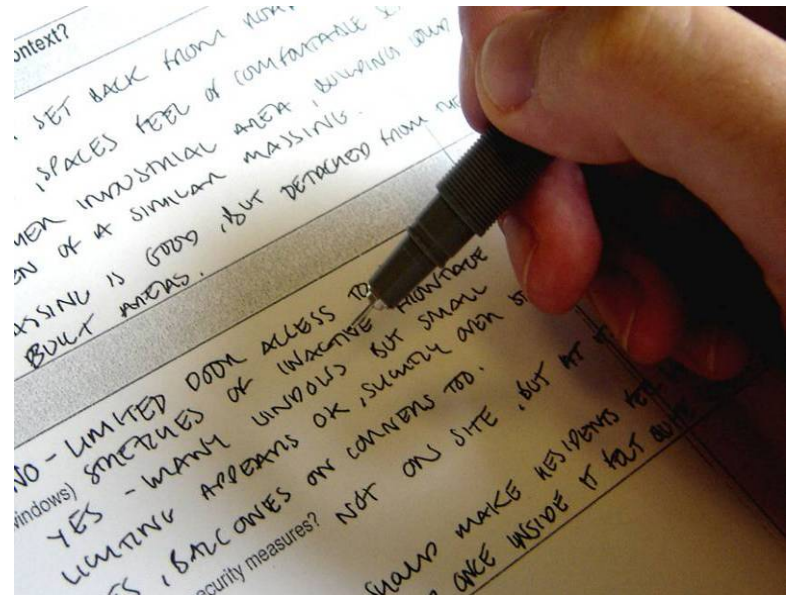 ontext?
, SET BACK FROM
, SPACES FEEL OF COMFORTABLE
INDUSTRIAL AREA, BUILDING
OF A SIMILAR MASSING.
ASSING IS GOOD, BUT DETACHED FROM THE
BUILT AREAS.
NO - LIMITED DOOR ACCESS TO FRONTAGE
windows) STRETCHES OF INACTIVE
YES - MANY WINDOWS BUT SMALL
LIGHTING APPEARS OK, SLIGHTLY OVER
ES, BALCONIES ON CORNERS TOO.
ecurity measures? NOT ON SITE, BUT AT
SHOULD MAKE RESIDENTS FEEL
ONCE INSIDE IT FELT QUITE